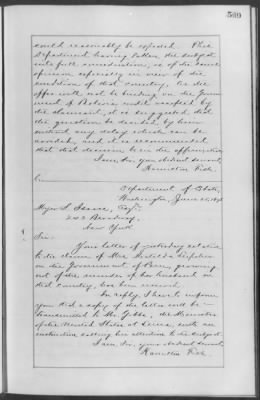 509
could reasonably be expected. This
Department having taken the subject
into full consideration, is of the same
opinion especially in view of the
condition of that country. As the
offer will not be binding on the Govern-
ment of Bolivia until accepted by
the claimant, it is suggested that
the question be decided by him
without any delay which can be
avoided, and it is recommended
that that decision be in the affirmative.
I am, Sir, your obedient servant,
Hamilton Fish.
Department of State,
Washington, June
Myer S. Isaacs, Esqr.
243 Broadway,
New York.
Sir:
Your letter of yesterday relative
to the claim of Mrs.
on the Government of Peru, growing
out of the murder of her husband in
that country, has been received.
In reply, I have to inform
you that a copy of the letter will be
transmitted to Mr. Gibbs, the Minister
of the United States at Lima, with an
instruction calling his attention to the subject.
I am, Sir, your obedient servant,
Hamilton Fish.